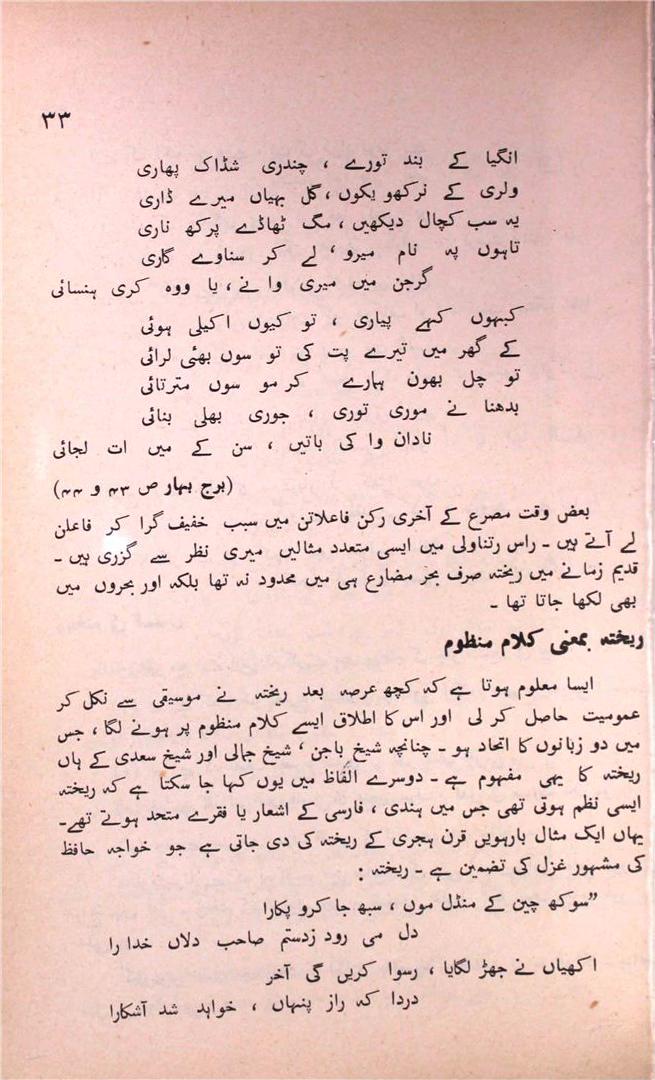 ۳۳
انگیا کے بند تورے ، چندری شڈاک پھاری
ولری کے نرکھو یکوں ، گل بہیاں میرے ڈاری
یہ سب کچال دیکھیں ، مگ ٹھاڈے پرکھ ناری
تاہوں پہ نام میرو ' لے کر سناوے گاری
گرجن میں میری وا نے ، یا ووہ کری ہنسائی
کبہوں کہے پیاری ، تو کیوں اکیلی ہوئی
کے گھر میں تیرے پت کی تو سوں بھئی لرائی
تو چل بھون ہمارے کر مو سوں مترتائی
بدھنا نے موری توری ، جوری بھلی بنائی
نادان وا کی باتیں ، سن کے میں ات لجائی
(برج بہار ص ۴۳ و ۴۴)
بعض وقت مصرع کے آخری رکن فاعلاتن میں سبب خفیف گرا کر فاعلن
لے آتے ہیں ۔ راس رتناولی میں ایسی متعدد مثالیں میری نظر سے گزری ہیں ۔
قدیم زمانے میں ریختہ صرف بحر مضارع ہی میں محدود نہ تھا بلکہ اور بحروں میں
بھی لکھا جاتا تھا ۔
ریختہ بمعنی کلام منظوم
ایسا معلوم ہوتا ہے کہ کچھ عرصہ بعد ریختہ نے موسیقی سے نکل کر
عمومیت حاصل کر لی اور اس کا اطلاق ایسے کلام منظوم پر ہونے لگا ، جس
میں دو زبانوں کا اتحاد ہو ۔ چنانچہ شیخ باجن ' شیخ جمالی اور شیخ سعدی کے ہاں
ریختہ کا یہی مفہوم ہے ۔ دوسرے الفاظ میں یوں کہا جا سکتا ہے کہ ریختہ
ایسی نظم ہوتی تھی جس میں ہندی ، فارسی کے اشعار یا فقرے متحد ہوتے تھے ۔
یہاں ایک مثال بارہویں قرن ہجری کے ریختہ کی دی جاتی ہے جو خواجہ حافظ
کی مشہور غزل کی تضمین ہے ۔ ریختہ :
”سوکھ چین کے منڈل موں ، سبھ جا کرو پکارا
دل می رود زدستم صاحب دلاں خدا را
اکھیاں نے جھڑ لگایا ، رسوا کریں گی آخر
دردا کہ راز پنہاں ، خواہد شد آشکارا